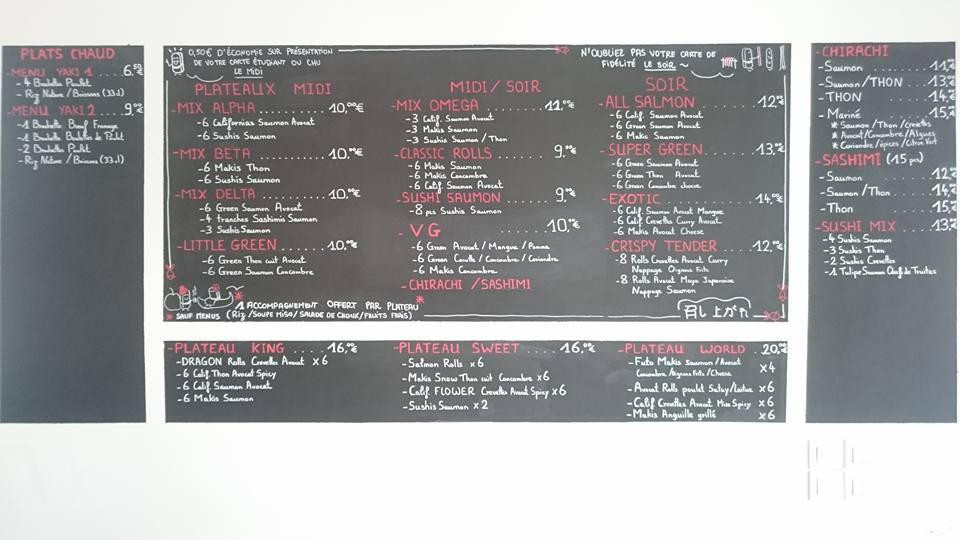 PLATS CHAUD
-MENU YAKI 1 .... 6.50€
- 4 Brochettes Poulet
- Riz Nature / Boissons (33cl)
-MENU YAKI 2 .... 9.00€
-1 Brochette Bœuf Fromage
-1 Brochette Boulettes de Poulet
-2 Brochettes Poulet
-Riz Nature / Boissons (33cl)
0,50€ D'ÉCONOMIE SUR PRÉSENTATION
DE VOTRE CARTE ÉTUDIANT OU CHU
LE MIDI
N'OUBLIEZ PAS VOTRE CARTE DE
FIDÉLITÉ LE SOIR ~
PLATEAUX MIDI
-MIX ALPHA ........ 10,00€
-6 Californias Saumon Avocat
-6 Sushis Saumon
-MIX BETA ........ 10,00€
-6 Makis Thon
-6 Sushis Saumon
-MIX DELTA ........ 10,00€
-6 Green Saumon Avocat
-4 tranches Sashimis Saumon
-3 Sushis Saumon
-LITTLE GREEN ...... 10,00€
-6 Green Thon cuit Avocat
-6 Green Saumon Concombre
MIDI/SOIR
-MIX OMEGA ........ 11,00€
-3 Calif. Saumon Avocat
-3 Makis Saumon
-3 Sushis Saumon / Thon
-CLASSIC ROLLS ...... 9,00€
-6 Makis Saumon
-6 Makis Concombre
-6 Calif. Saumon Avocat
-SUSHI SAUMON ..... 9,00€
-8 pcs Sushis Saumon
- VG ............ 10,00€
-6 Green Avocat / Mangue / Pomme
-6 Green Carotte / Concombre / Coriandre
-6 Makis Concombre
-CHIRACHI /SASHIMI
SOIR
-ALL SALMON ...... 12,00€
-6 Calif. Saumon Avocat
-6 Green Saumon Avocat
-6 Makis Saumon
-SUPER GREEN ..... 13,00€
-6 Green Saumon Avocat
-6 Green Thon Avocat
-6 Green Concombre cheese
-EXOTIC ......... 14,00€
-6 Calif. Saumon Avocat Mangue
-6 Calif. Crevettes Curry Avocat
-6 Makis Avocat Cheese
-CRISPY TENDER .... 12,00€
-8 Rolls Crevettes Avocat Curry
Nappage Oignons Frits
-8 Rolls Avocat Mayo Japonaise
Nappage Saumon
1 ACCOMPAGNEMENT OFFERT PAR PLATEAU*
* SAUF MENUS (Riz /SOUPE MISO/SALADE DE CHOUX/FRUITS FRAIS)
召し上がれ
-PLATEAU KING .... 16,00€
-DRAGON Rolls Crevettes Avocat x6
-6 Calif. Thon Avocat Spicy
-6 Calif. Saumon Avocat
-6 Makis Saumon
-PLATEAU SWEET .... 16,00€
-Salmon Rolls x6
-Makis Snow Thon cuit Concombre x6
-Calif. FLOWER Crevettes Avocat Spicy x6
-Sushis Saumon x2
-PLATEAU WORLD .. 20,00€
-Futo Makis Saumon / Avocat
Concombre /Oignons Frits /Cheese x4
-Avocat Rolls poulet Satay/Laitue x6
-Calif Crevettes Avocat Miso Spicy x6
-Makis Anguille grillé x6
-CHIRACHI
-Saumon ........ 11,00€
-Saumon/THON .... 13,00€
-THON ......... 14,00€
-Mariné ........ 15,00€
* Saumon / Thon / crevettes
* Avocat / Concombre / Algues
* Coriandre / épices / Citron Vert
-SASHIMI (15 pcs)
-Saumon ........ 12,00€
-Saumon / Thon .... 14,00€
-Thon ......... 15,00€
-SUSHI MIX ..... 13,00€
-4 Sushis Saumon
-3 Sushis Thon
-2 Sushis Crevettes
-1 Tulipe Saumon Œuf de Truites